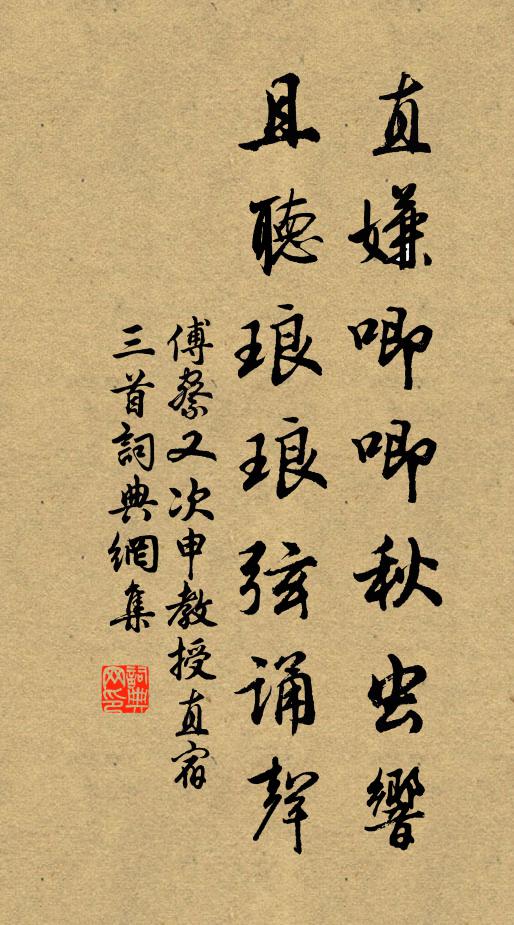 直嫌唧唧秋虫響
且聽琅琅弦诵聲
傅察又次申教授直宿
三首詞典網集
詞典网印